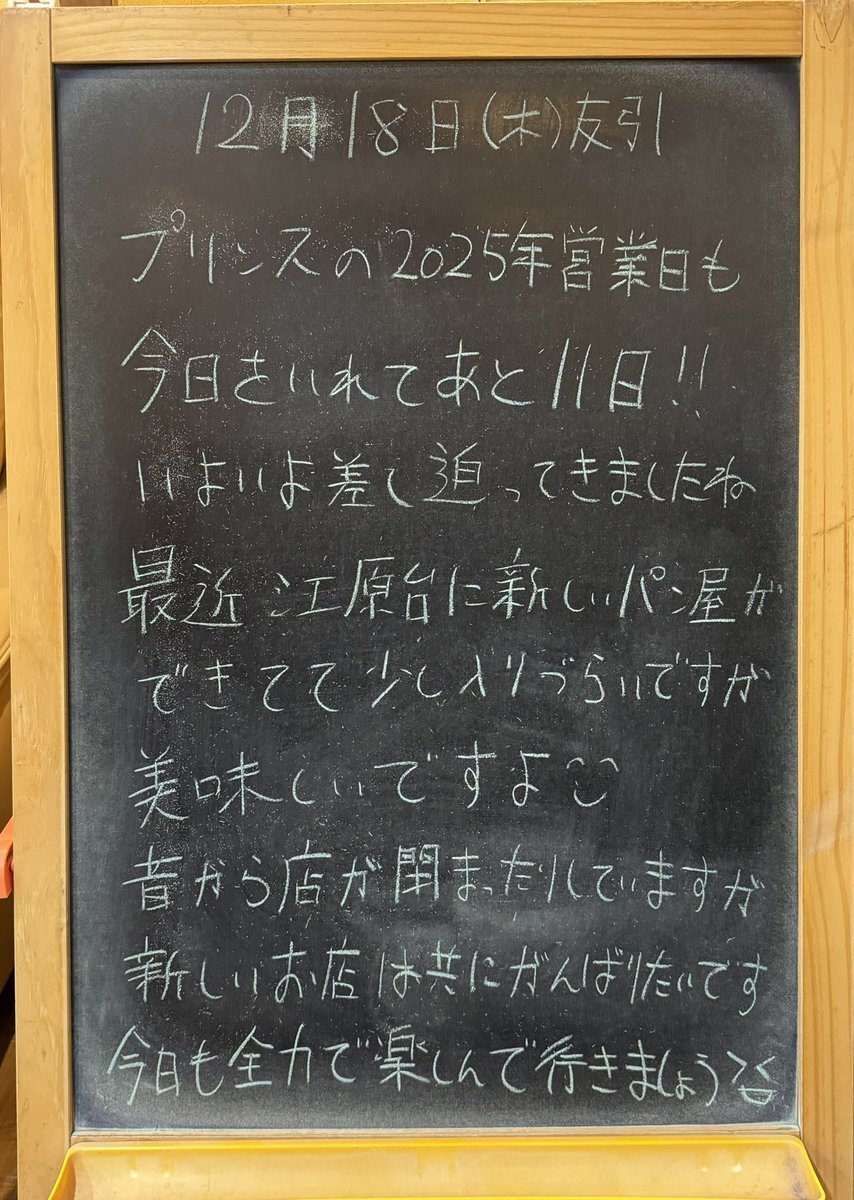 12月18日(木)友引
プリンスの2025年営業日も
今日をいれてあと11日!!
いよいよ差し迫ってきましたね
最近江原台に新しいパン屋が
できてて少し入りづらいですが
美味しいですよ
昔から店が閉まったりしていますが
新しいお店は共にがんばりたいです
今日も全力で楽しんで行きましょう